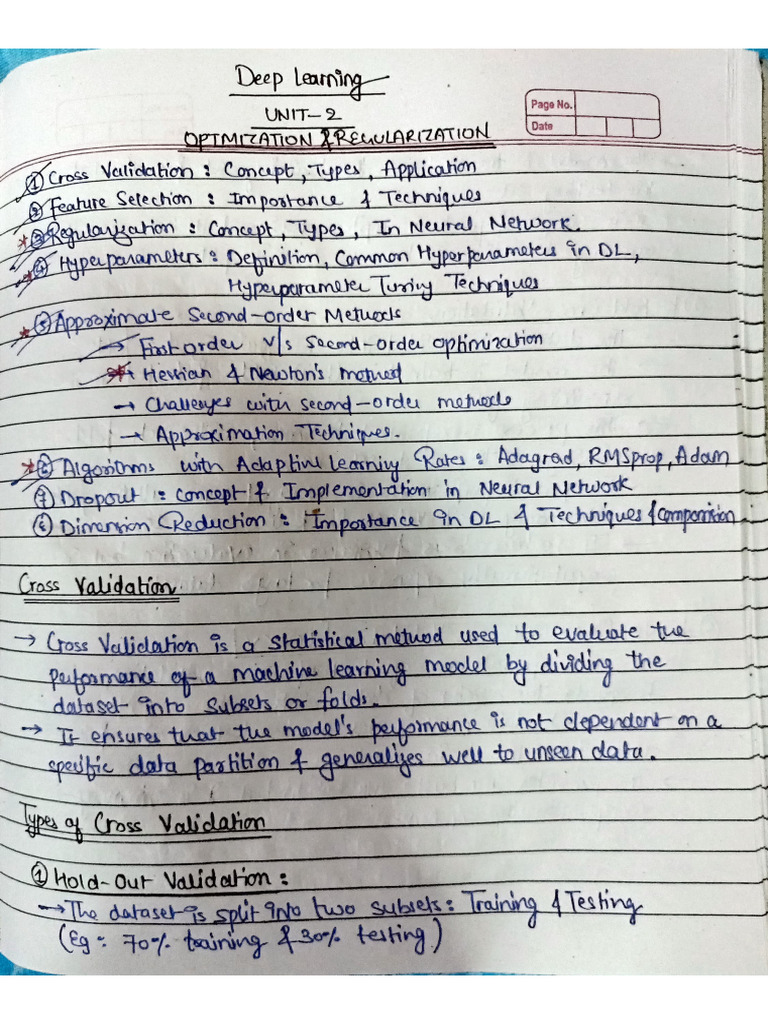 Deep Learning
UNIT-2
Page No.
Date
OPTMIZATION & REGULARIZATION
① Cross Validation : Concept, Types, Application
② Feature Selection : Importance & Techniques
* ③ Regularization : Concept, Types, In Neural Network.
* ④ Hyperparameters : Definition, Common Hyperparameters in DL,
Hyperparameter Tuning Techniques
* ⑤ Approximate Second-order Methods
→ First order v/s second-order optimization
* → Hessian & Newton's method
→ Challenges with second-order methods
→ Approximation Techniques.
* ⑥ Algorithms with Adaptive Learning Rates : Adagrad, RMSprop, Adam
Dropout : Concept & Implementation in Neural Network
Dimension Reduction : Importance in DL & Techniques & Comparision
Cross Validation
→ Cross Validation is a statistical method used to evaluate the
performance of a machine learning model by dividing the
dataset into subsets or folds.
→ It ensures that the model's performance is not dependent on a
specific data partition & generalizes well to unseen data.
Types of Cross Validation
① Hold-Out Validation :
→ The dataset is split into two subsets : Training & Testing
(Eg : 70% training & 30% testing)